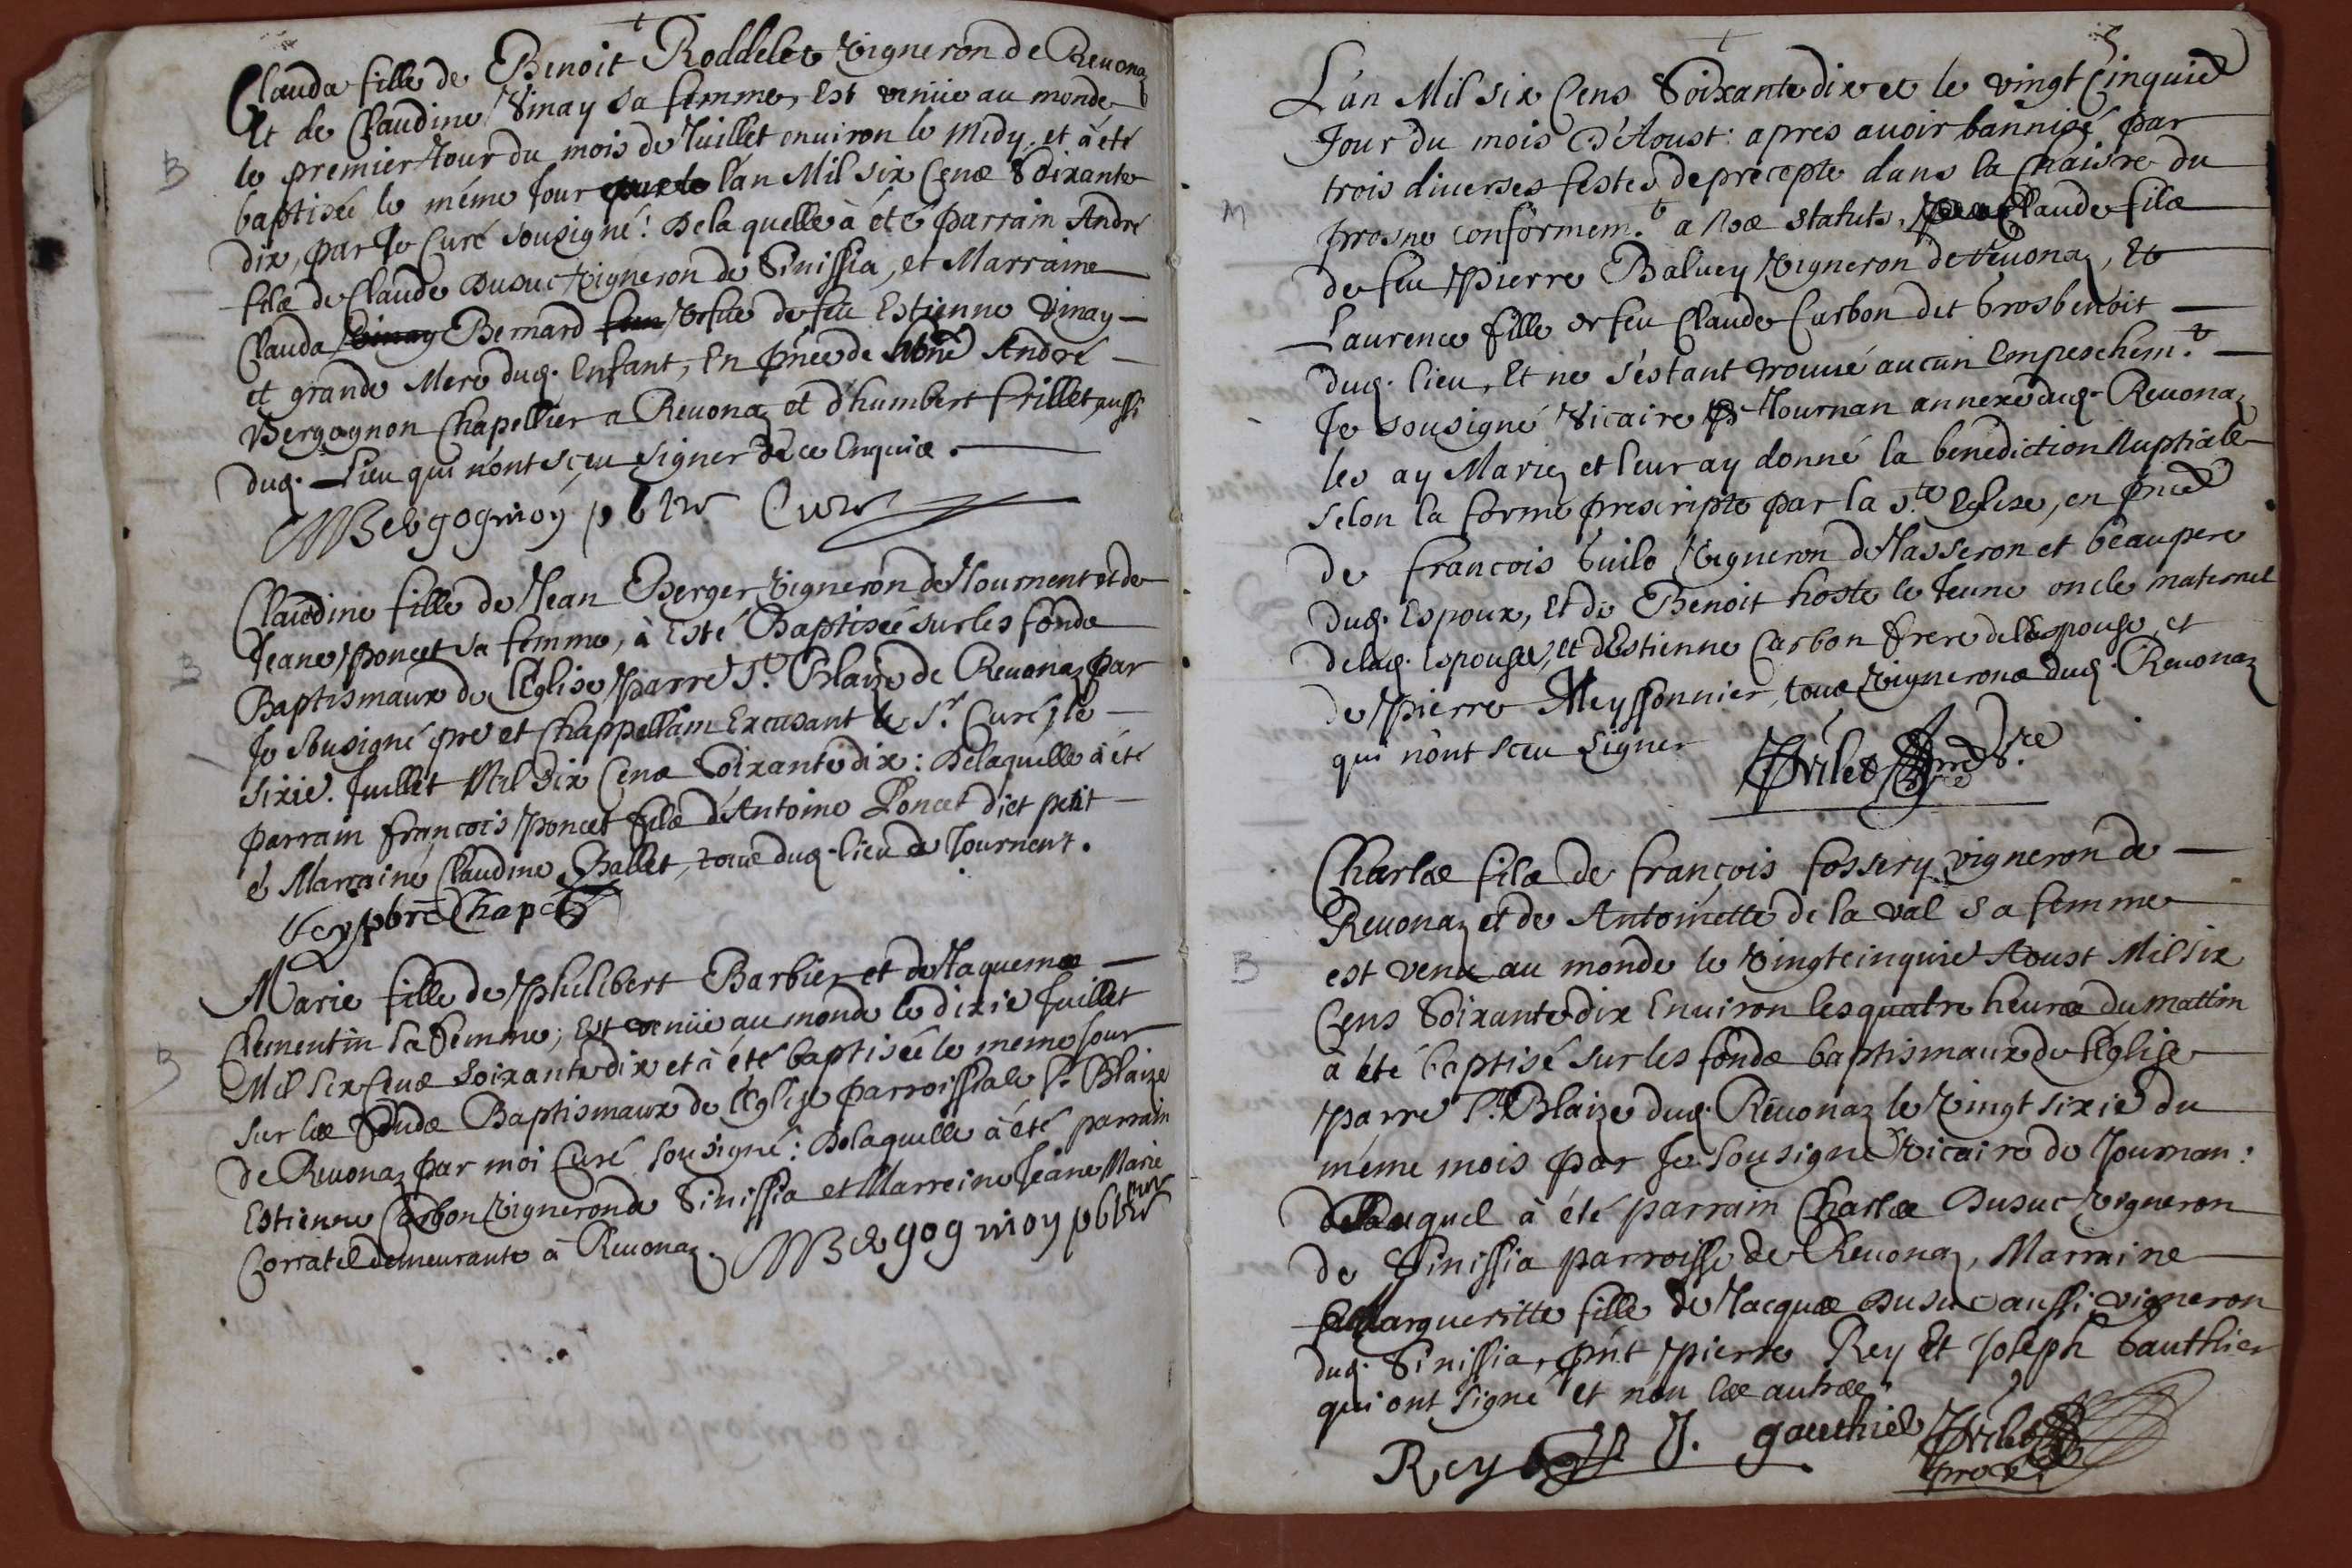 Clauda fille de Benoit Roddelet Vigneron de Reuonaz
Et de Claudine Vinay sa femme, Est venüe au monde
le premier Jour du mois de Juillet enuiron le midy, et à eté
B
baptiseé le méme Jour l'an Mil six Cens Soixante
dix, par Je Curé sousigné: De la quelle à été parrain André
fils de Claude Dusuc Vigneron de Sinissia, et Marraine
Clauda Vinay Bernard Vefue de feu Estienne Vinay
et grande Mere dud. Enfant, En pñce de André
Bergognon Chapellier a Reuonaz et d'humbert frillet aussi
dud. Lieu qui n'ont sçeu signer de ce Enquis.
Bergognion pbtre Curé
Claudine fille de Jean Berger Vigneron de Journent et de
Jeane Poncet sa femme, à Esté Baptiseé sur les fonds
B
Baptismaux de l'Eglise Parre St. Blaize de Reuonaz par
Je sousigné pre et Chappellain Excusant le Sr. Curé, le
sixie. Juillet Mil Six Cens Soixante dix: De laquelle à été
parrain françois Poncet fils d'Antoine Poncet dict petit
et Marraine Claudine Ballet, tous dud. lieu de Journent.
pbre Chap
Marie fille de Philibert Barbier et de Jaquema
Clementin sa femme, Est venüe au monde le dixie Juillet
B
Mil Six Cens Soixante dix et à été baptiseé le meme Jour
sur les Fonds Baptismaux de l'Eglise parroissiale St. Blaize
de Reuonaz par moi Curé sousigné: De laquelle à été parrain
Estienne Carbon Vigneron de Sinissia et Marreine Jeane Marie
Corratel demeurante à Reuonaz. Bergognion pbtre Curé
5.
L'an Mil six Cens Soixante dix et le vingt Cinquie
Jour du mois D'Aoust: apres auoir bannisé par
trois diuerses festes de precepte dans la Chaisre du
M
prosne conformem.t a nos statuts, Claude fils
de feu Pierre Baluey Vigneron de Reuonaz, Et
Laurence fille de feu Claude Carbon dit Grosbenoit
dud. lieu, Et ne s'estant trouué aucun Empeschem.t
Je sousigné Vicaire de Journan annexe dud. Reuonaz
les ay Mariez et leur ay donné la benediction Nuptiale
selon la forme prescripte par la Ste Eglise, en pñce
de francois Guilo Vigneron de Jasseron et beaupere
dud. Espoux, Et de Benoit hoste le Jeune oncle maternel
de lad. Espouse, et d'Estienne Carbon frere de l'espouse et
de Pierre Meyssonnier, tous Vignerons dud. Reuonaz
qui n'ont sceu signer
Charles fils de françois fossery vigneron de
Reuonaz et de Antoinette de la val sa femme
B
est venu au monde le Vingtcinquie Aoust Mil six
Cens Soixante dix Enuiron les quatre heures du mattin
à été baptisé sur les fonds baptismaux de l'Eglise
Parre St. Blaize dud. Reuonaz le Vingt sixie du
méme mois par Je Sousigné Vicaire de Journan:
Duquel à été parrain Charles Dusuc Vigneron
de Sinissia parroisse de Reuonaz, Marraine
Margueritte fille de Jacques Dusuc aussi vigneron
dud. Sinissia, pñt Pierre Rey Et Joseph Gauthier
qui ont signé et non les autres.
Rey J. gauthier